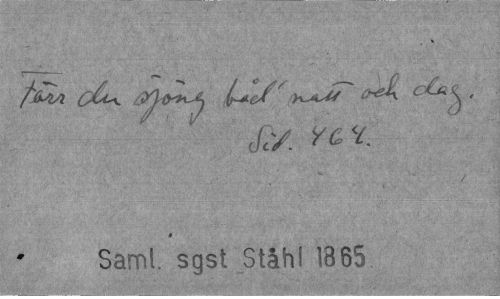 Förr du sjöng båd' natt och dag.
Sid. 464.
Saml. sgst Ståhl 1865